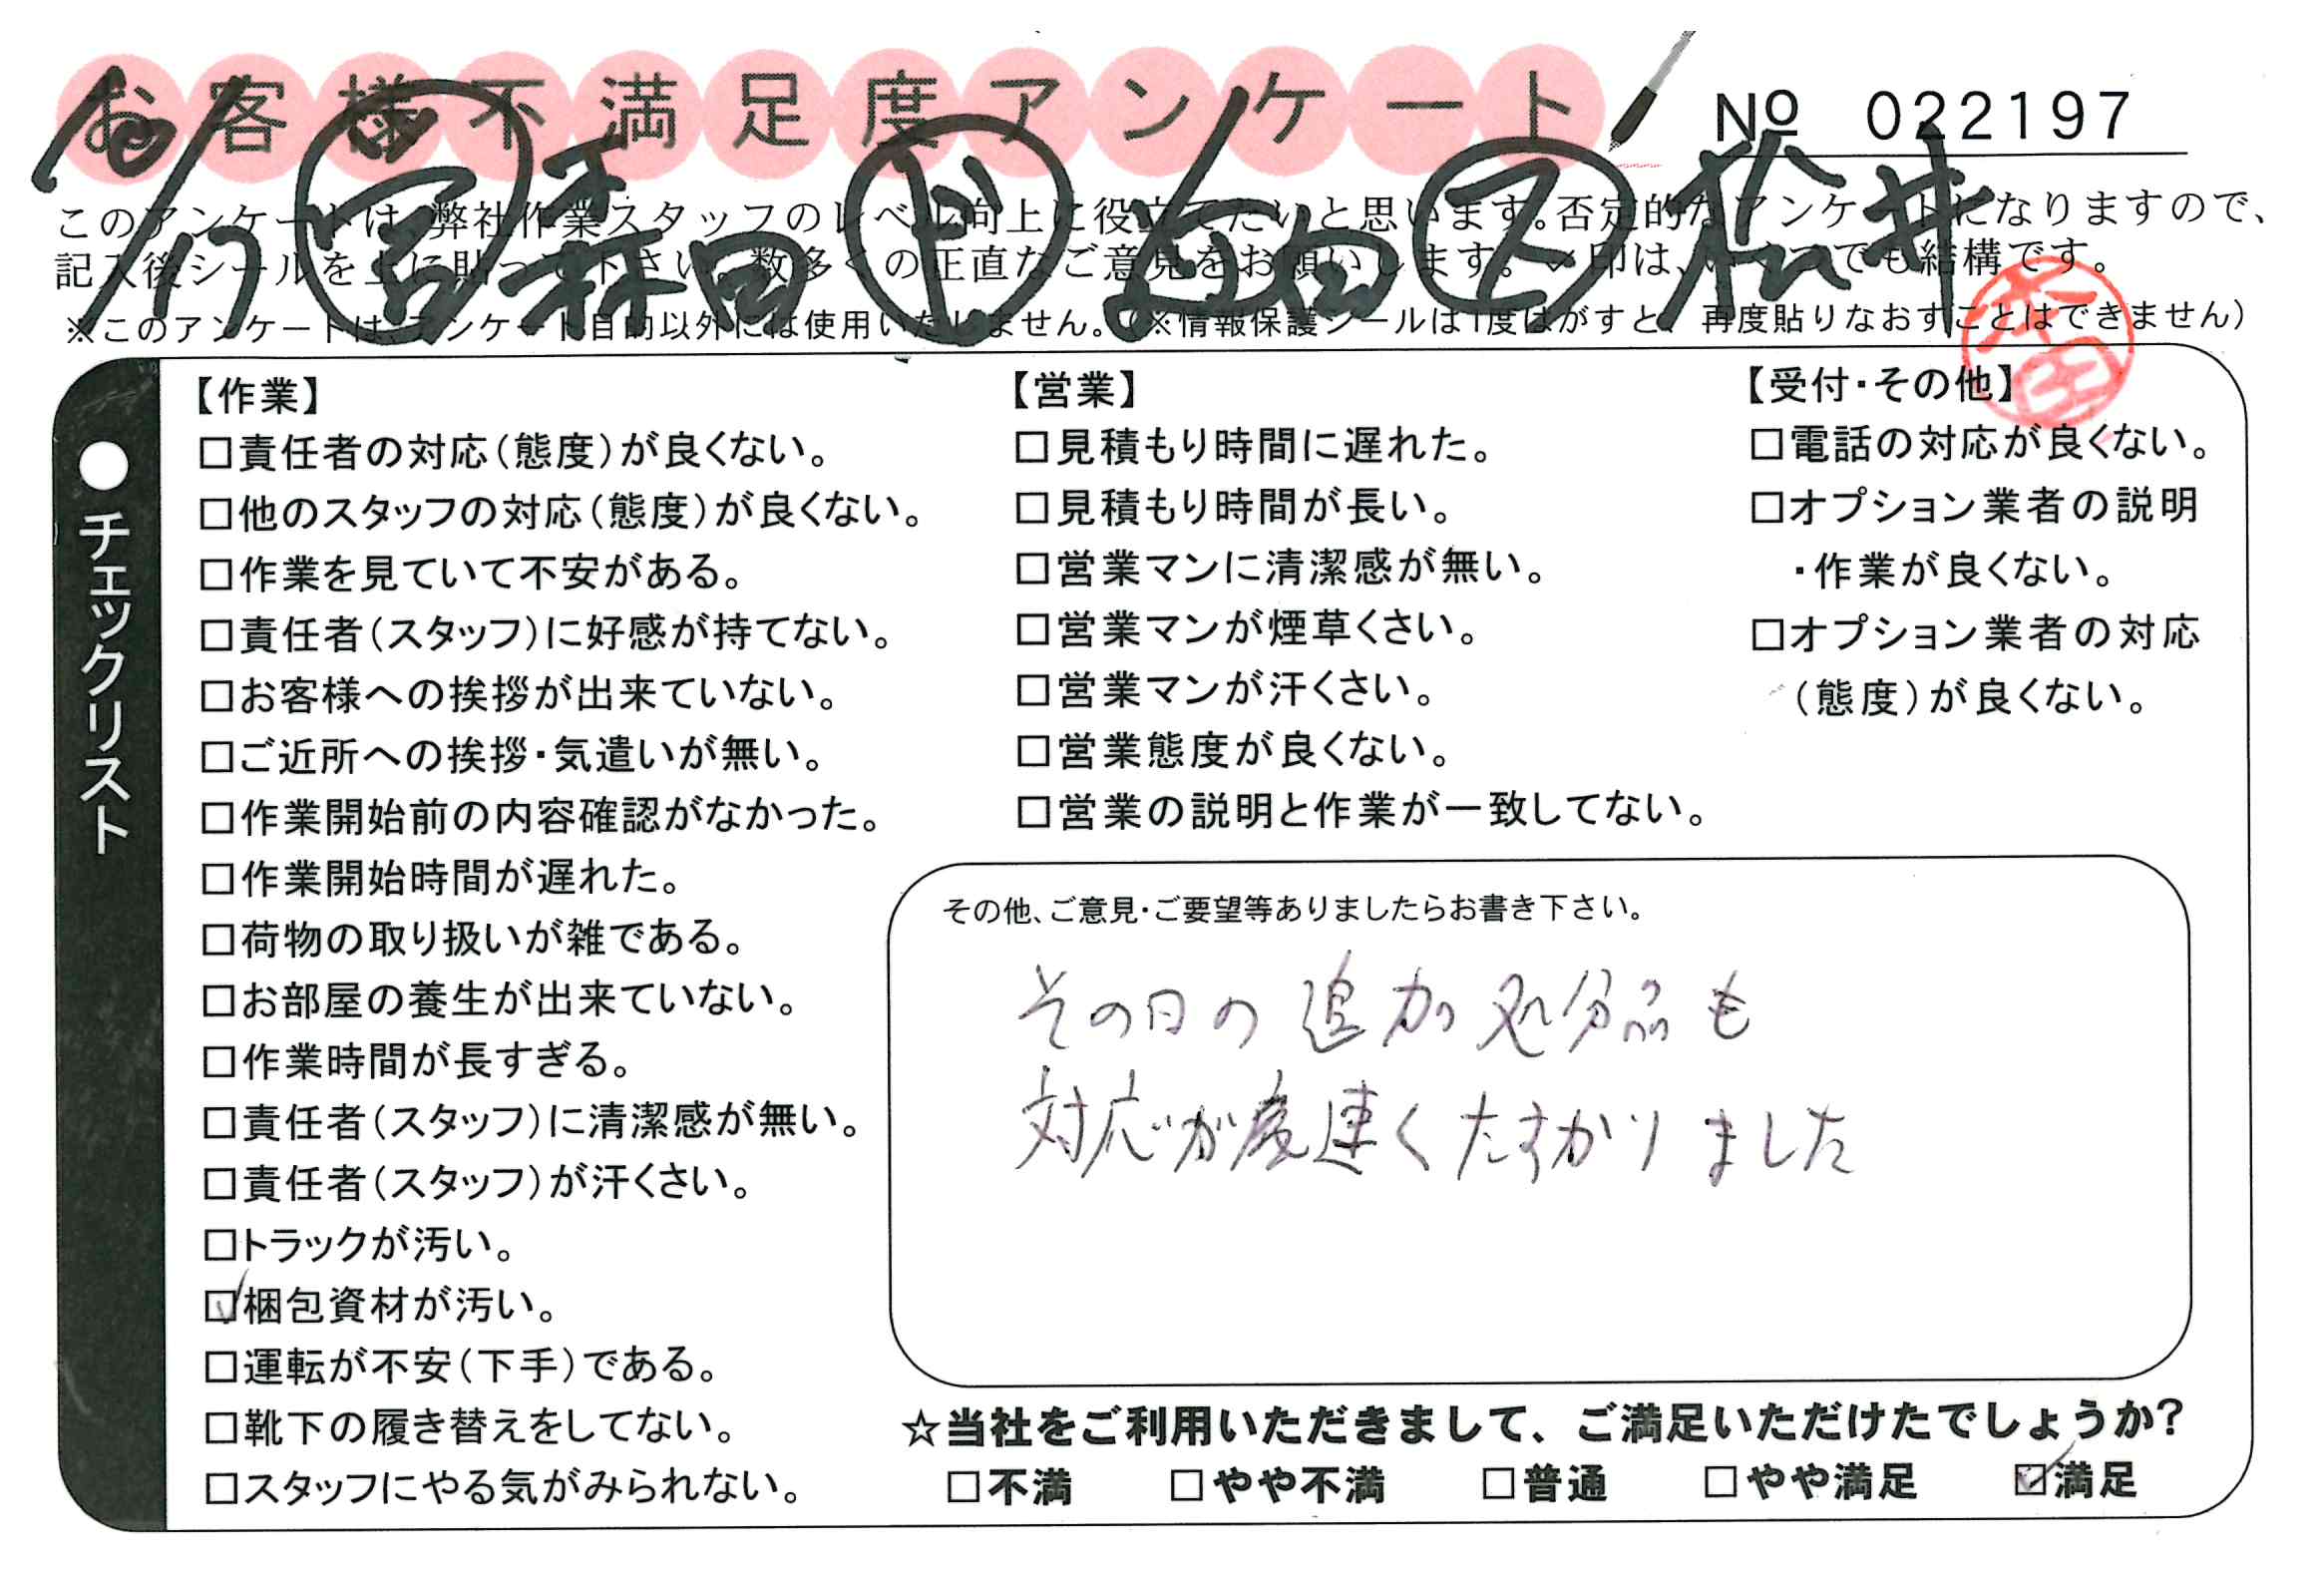 お客様不満足度アンケート
№ 022197
10/17 営 杢田 ド 山田 ス 松井
このアンケートは、弊社作業スタッフのレベル向上に役立てたいと思います。否定的なアンケートになりますので、
記入後シールを上に貼って下さい。数多くの正直なご意見をお願いします。✓印は、いくつでも結構です。
※このアンケートは、アンケート目的以外には使用いたしません。（※情報保護シールは1度はがすと、再度貼りなおすことはできません）
本田
●チェックリスト
【作業】
□責任者の対応（態度）が良くない。
□他のスタッフの対応（態度）が良くない。
□作業を見ていて不安がある。
□責任者（スタッフ）に好感が持てない。
□お客様への挨拶が出来ていない。
□ご近所への挨拶・気遣いが無い。
□作業開始前の内容確認がなかった。
□作業開始時間が遅れた。
□荷物の取り扱いが雑である。
□お部屋の養生が出来ていない。
□作業時間が長すぎる。
□責任者（スタッフ）に清潔感が無い。
□責任者（スタッフ）が汗くさい。
□トラックが汚い。
☑梱包資材が汚い。
□運転が不安（下手）である。
□靴下の履き替えをしてない。
□スタッフにやる気がみられない。
【営業】
□見積もり時間に遅れた。
□見積もり時間が長い。
□営業マンに清潔感が無い。
□営業マンが煙草くさい。
□営業マンが汗くさい。
□営業態度が良くない。
□営業の説明と作業が一致してない。
【受付・その他】
□電話の対応が良くない。
□オプション業者の説明
・作業が良くない。
□オプション業者の対応
（態度）が良くない。
その他、ご意見・ご要望等ありましたらお書き下さい。
その日の追加処分品も
対応が速くたすかりました
☆当社をご利用いただきまして、ご満足いただけたでしょうか？
□不満 □やや不満 □普通 □やや満足 ☑満足